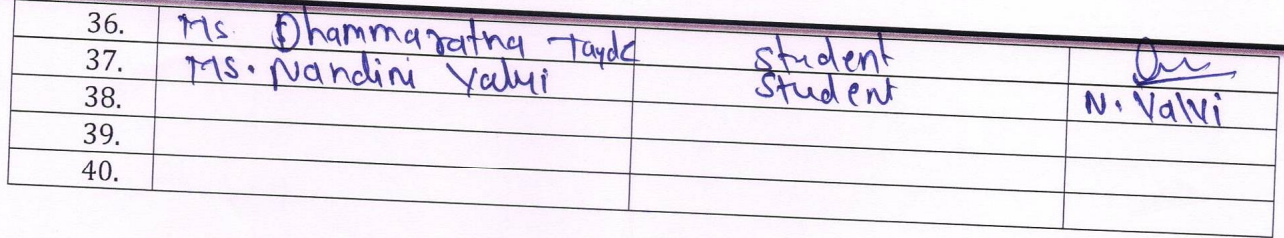 36. Ms. Dhammaratna Tayde Student
37. Ms. Nandini Valvi Student N. Valvi
38.
39.
40.